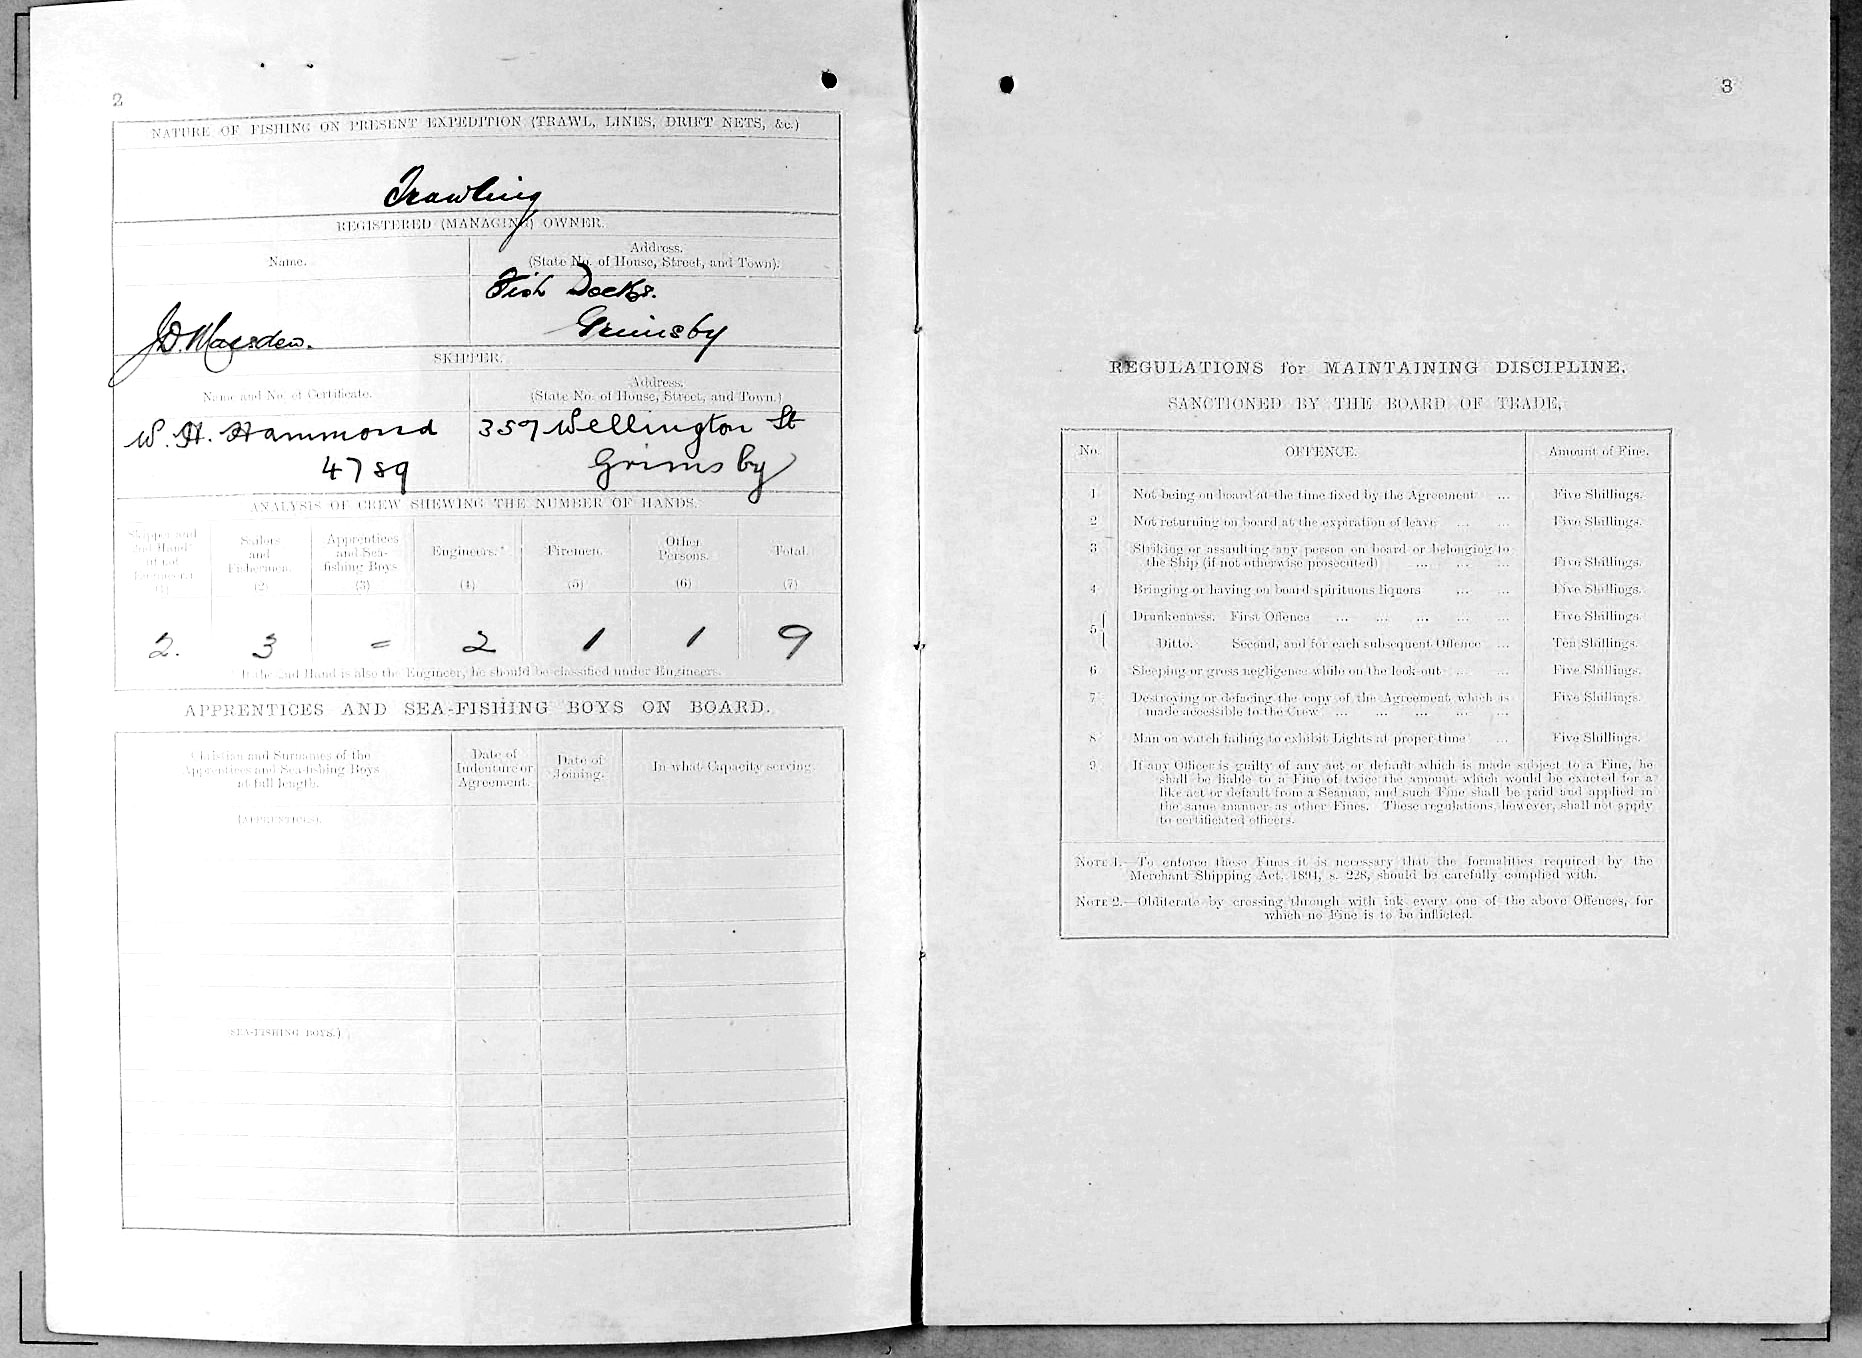 2
NATURE OF FISHING ON PRESENT EXPEDITION (TRAWL, LINES, DRIFT NETS, &c.)
Trawling
REGISTERED (MANAGING) OWNER.
Name.
Address.
(State No. of House, Street, and Town).
J.D. Marsden.
Fish Docks.
Grimsby
SKIPPER.
Name and No. of Certificate.
Address.
(State No. of House, Street, and Town.)
W. H. Hammond
4789
357 Wellington St
Grimsby
ANALYSIS OF CREW SHEWING THE NUMBER OF HANDS.
Skipper and
2nd Hand
if not
Engineer.
(1)
Sailors
and
Fishermen.
(2)
Apprentices
and Sea-
fishing Boys
(3)
Engineers.*
(4)
Firemen.
(5)
Other
Persons.
(6)
Total.
(7)
2. 3 = 2 1 1 9
* If the 2nd Hand is also the Engineer, he should be classified under Engineers.
APPRENTICES AND SEA-FISHING BOYS ON BOARD.
Christian and Surnames of the
Apprentices and Sea-fishing Boys
at full length.
Date of
Indenture or
Agreement.
Date of
Joining.
In what Capacity serving.
(APPRENTICES).
SEA-FISHING BOYS.)
3
REGULATIONS for MAINTAINING DISCIPLINE.
SANCTIONED BY THE BOARD OF TRADE.
No. OFFENCE. Amount of Fine.
1 Not being on board at the time fixed by the Agreement ... Five Shillings.
2 Not returning on board at the expiration of leave ... ... Five Shillings.
3 Striking or assaulting any person on board or belonging to
the Ship (if not otherwise prosecuted) ... ... ... Five Shillings.
4 Bringing or having on board spirituous liquors ... ... Five Shillings.
5 { Drunkenness. First Offence ... ... ... ... ... Five Shillings.
Ditto. Second, and for each subsequent Offence ... Ten Shillings.
6 Sleeping or gross negligence while on the look-out ... ... Five Shillings.
7 Destroying or defacing the copy of the Agreement which is Five Shillings.
made accessible to the Crew ... ... ... ... ...
8 Man on watch failing to exhibit Lights at proper time ... Five Shillings.
9 If any Officer is guilty of any act or default which is made subject to a Fine, he
shall be liable to a Fine of twice the amount which would be exacted for a
like act or default from a Seaman, and such Fine shall be paid and applied in
the same manner as other Fines. These regulations, however, shall not apply
to certificated officers.
NOTE 1.—To enforce these Fines it is necessary that the formalities required by the
Merchant Shipping Act, 1894, s. 228, should be carefully complied with.
NOTE 2.—Obliterate by crossing through with ink every one of the above Offences, for
which no Fine is to be inflicted.